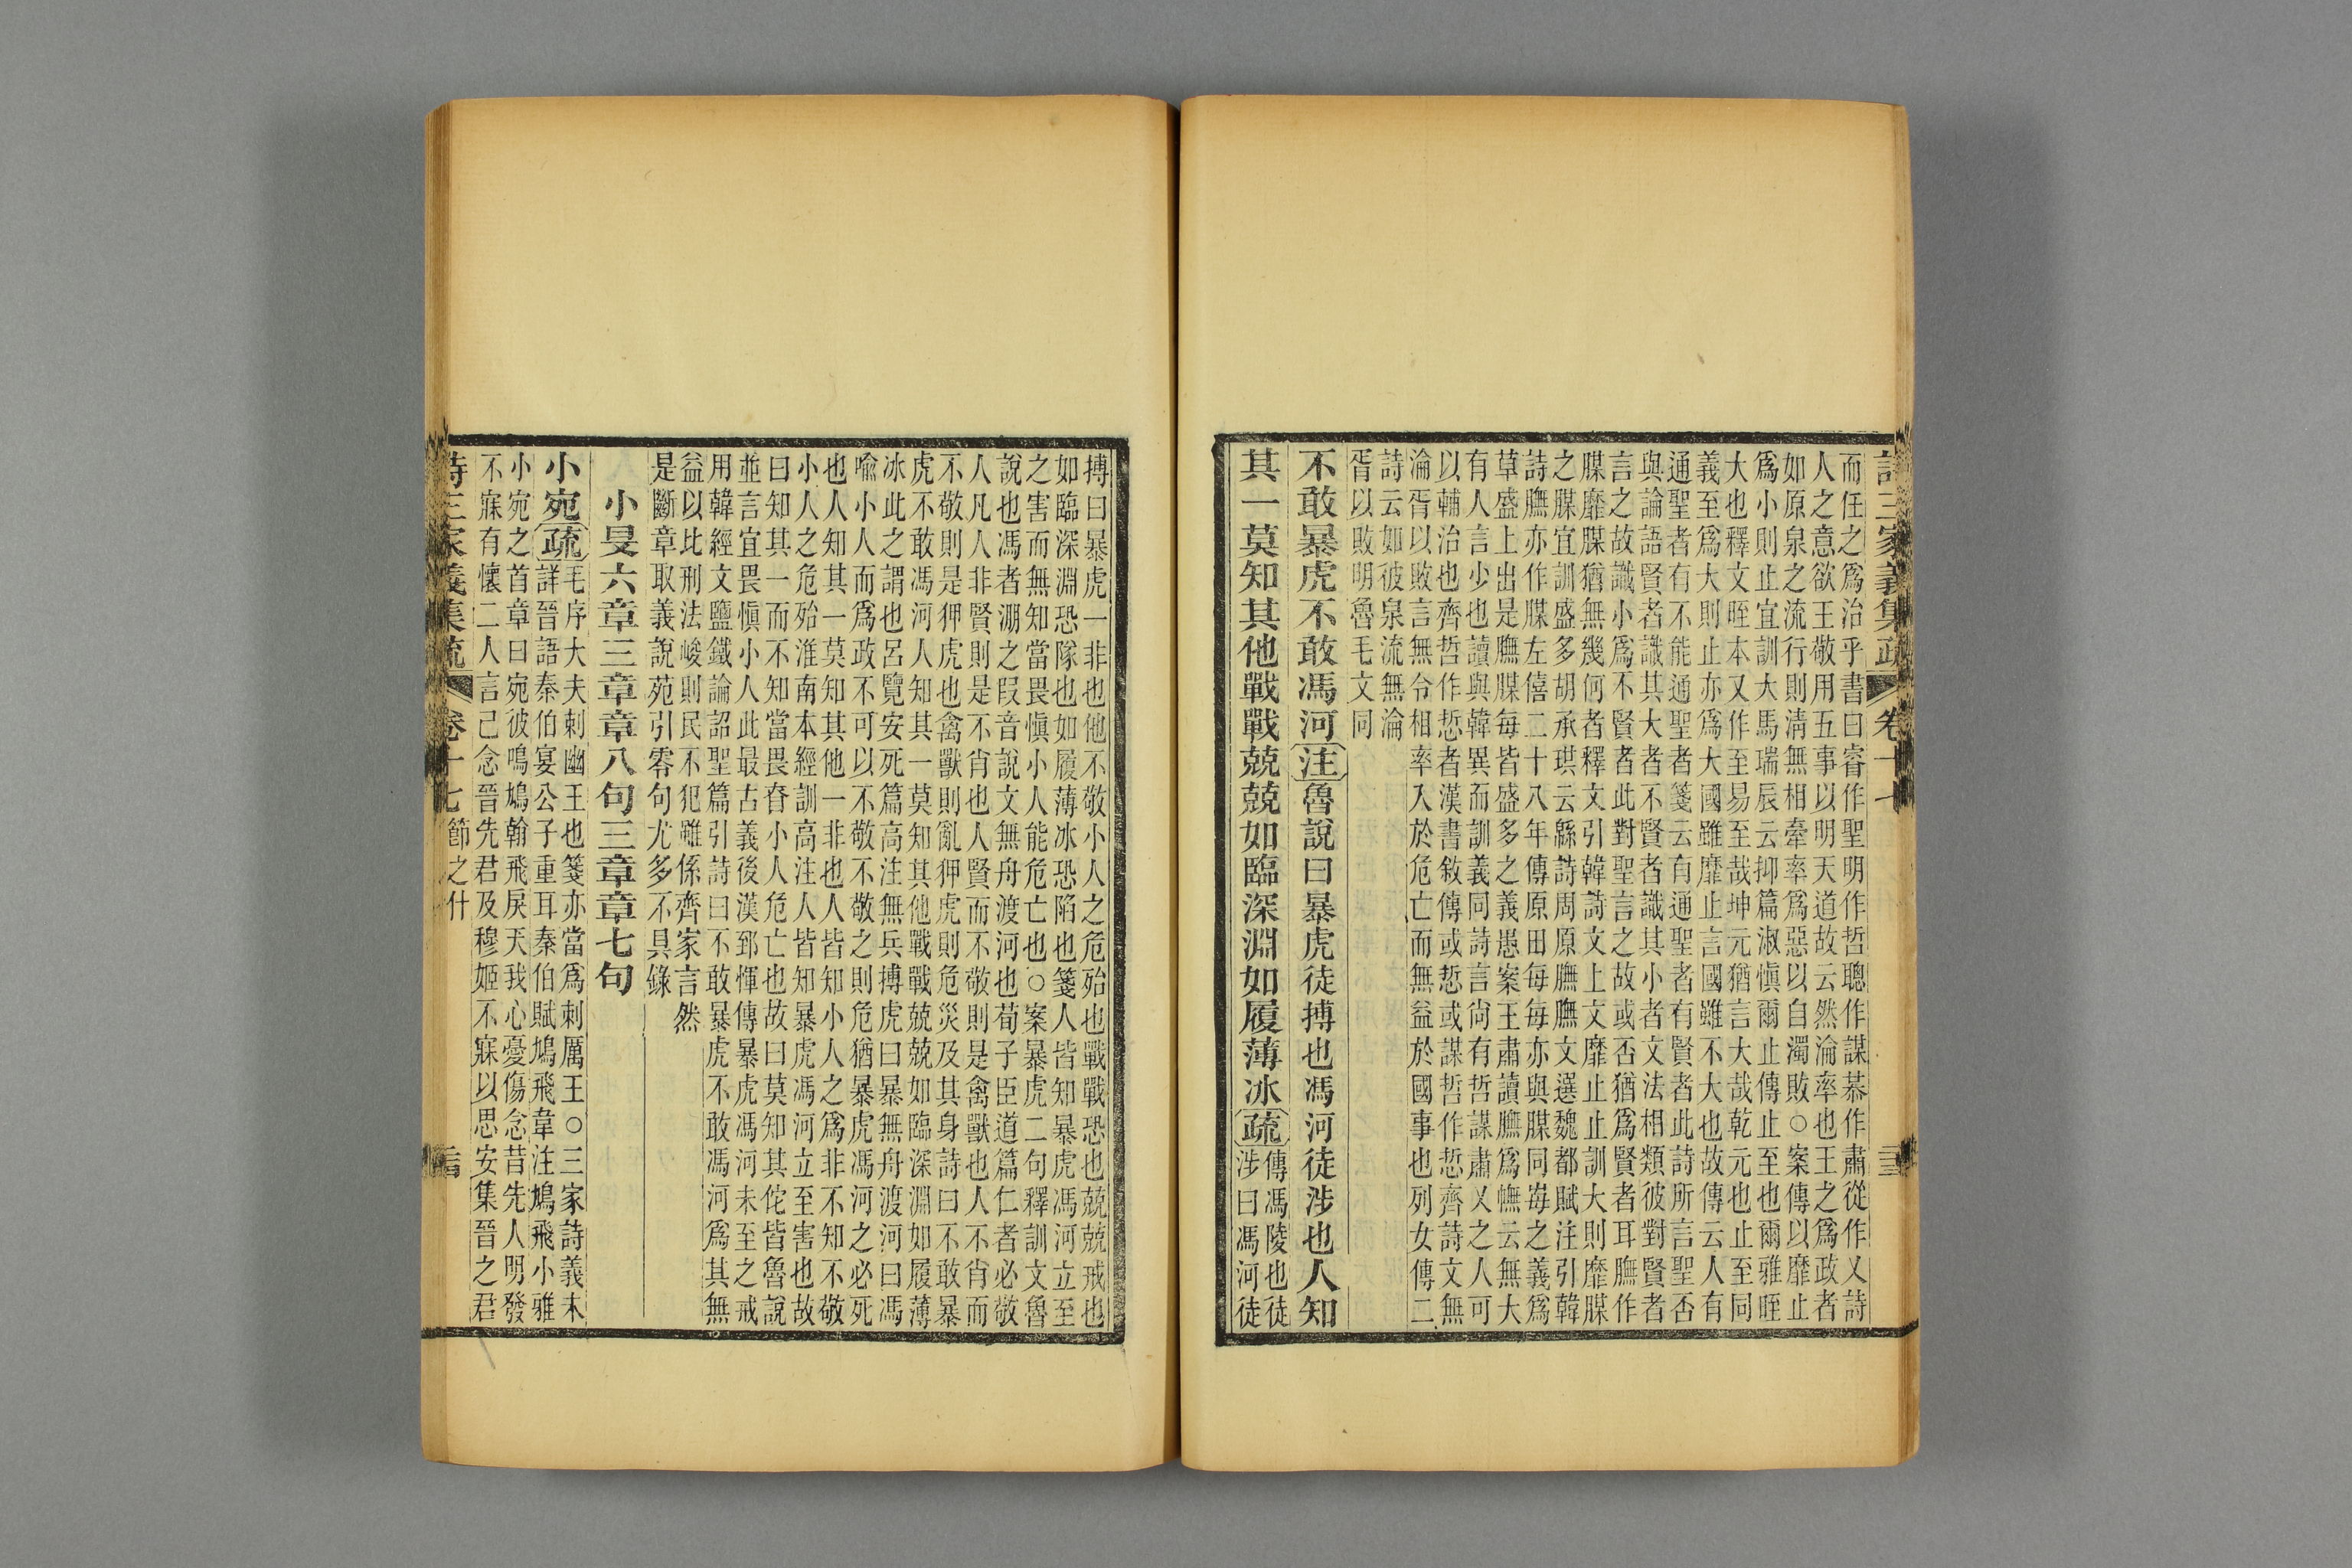 詩三家義集疏 卷十七
而任之爲治乎書曰睿作聖明作哲聰作謀恭作肅從作乂詩
人之意欲王敬用五事以明天道故云然淪率也王之爲政者
如原泉之流行則清無相牽率爲惡以自濁敗○案傳以靡止
爲小則止宜訓大馬瑞辰云抑篇淑愼爾止傳止至也爾雅晊
大也釋文晊本又作至易至哉坤元猶言大哉乾元也止至同
義至爲大則止亦爲大國雖靡止言國雖不大也故傳云人有
通聖者有不能通聖者箋云有通聖者有賢者此詩所言聖否
與論語賢者識其大者不賢者識其小者文法相類彼對賢者
言之故識小爲不賢者此對聖言之故或否猶爲賢者耳膴作
腜靡腜猶無幾何者釋文引韓詩文上文靡止止訓大則靡腜
之腜宜訓盛多胡承珙云緜詩周原膴膴文選魏都賦注引韓
詩膴亦作腜左僖二十八年傳原田每每亦與腜同每之義爲
草盛上出是膴腜每皆盛多之義愚案王肅讀膴爲幠云無大
有人言少也讀與韓異而訓義同詩言尚有哲謀肅乂之人可
以輔治也齊哲作悊者漢書敘傳或悊或謀哲作悊齊詩文無
淪胥以敗言無令相率入於危亡而無益於國事也列女傳二
詩云如彼泉流無淪
胥以敗明魯毛文同
不敢暴虎不敢馮河注魯說曰暴虎徒搏也馮河徒涉也人知
其一莫知其他戰戰兢兢如臨深淵如履薄冰疏傳馮陵也徒
涉曰馮河徒
搏曰暴虎一非也他不敬小人之危殆也戰戰恐也兢兢戒也
如臨深淵恐隊也如履薄冰恐陷也箋人皆知暴虎馮河立至
之害而無知當畏愼小人能危亡也○案暴虎二句釋訓文魯
說也馮者淜之叚音說文無舟渡河也荀子臣道篇仁者必敬
人凡人非賢則是不肖也人賢而不敬則是禽獸也人不肖而
不敬則是狎虎也禽獸則亂狎虎則危災及其身詩曰不敢暴
虎不敢馮河人知其一莫知其他戰戰兢兢如臨深淵如履薄
冰此之謂也呂覽安死篇高注無兵搏虎曰暴無舟渡河曰馮
喩小人而爲政不可以不敬不敬之則危猶暴虎馮河之必死
也人知其一莫知其他一非也人皆知小人之爲非不知不敬
小人之危殆淮南本經訓高注人皆知暴虎馮河立至害也故
曰知其一而不知當畏眘小人危亡也故曰莫知其佗皆魯說
並言宜畏愼小人此最古義後漢郅惲傳暴虎馮河未至之戒
用韓經文鹽鐵論詔聖篇引詩曰不敢暴虎不敢馮河爲其無
益以比刑法峻則民不犯雖係齊家言然
是斷章取義說苑引零句尤多不具錄
小旻六章三章章八句三章章七句
小宛疏毛序大夫刺幽王也箋亦當爲刺厲王○三家詩義未
詳晉語秦伯宴公子重耳秦伯賦鳩飛韋注鳩飛小雅
小宛之首章曰宛彼鳴鳩翰飛戾天我心憂傷念昔先人明發
不寐有懷二人言己念晉先君及穆姬不寐以思安集晉之君
詩三家義集疏 卷十七 節之什